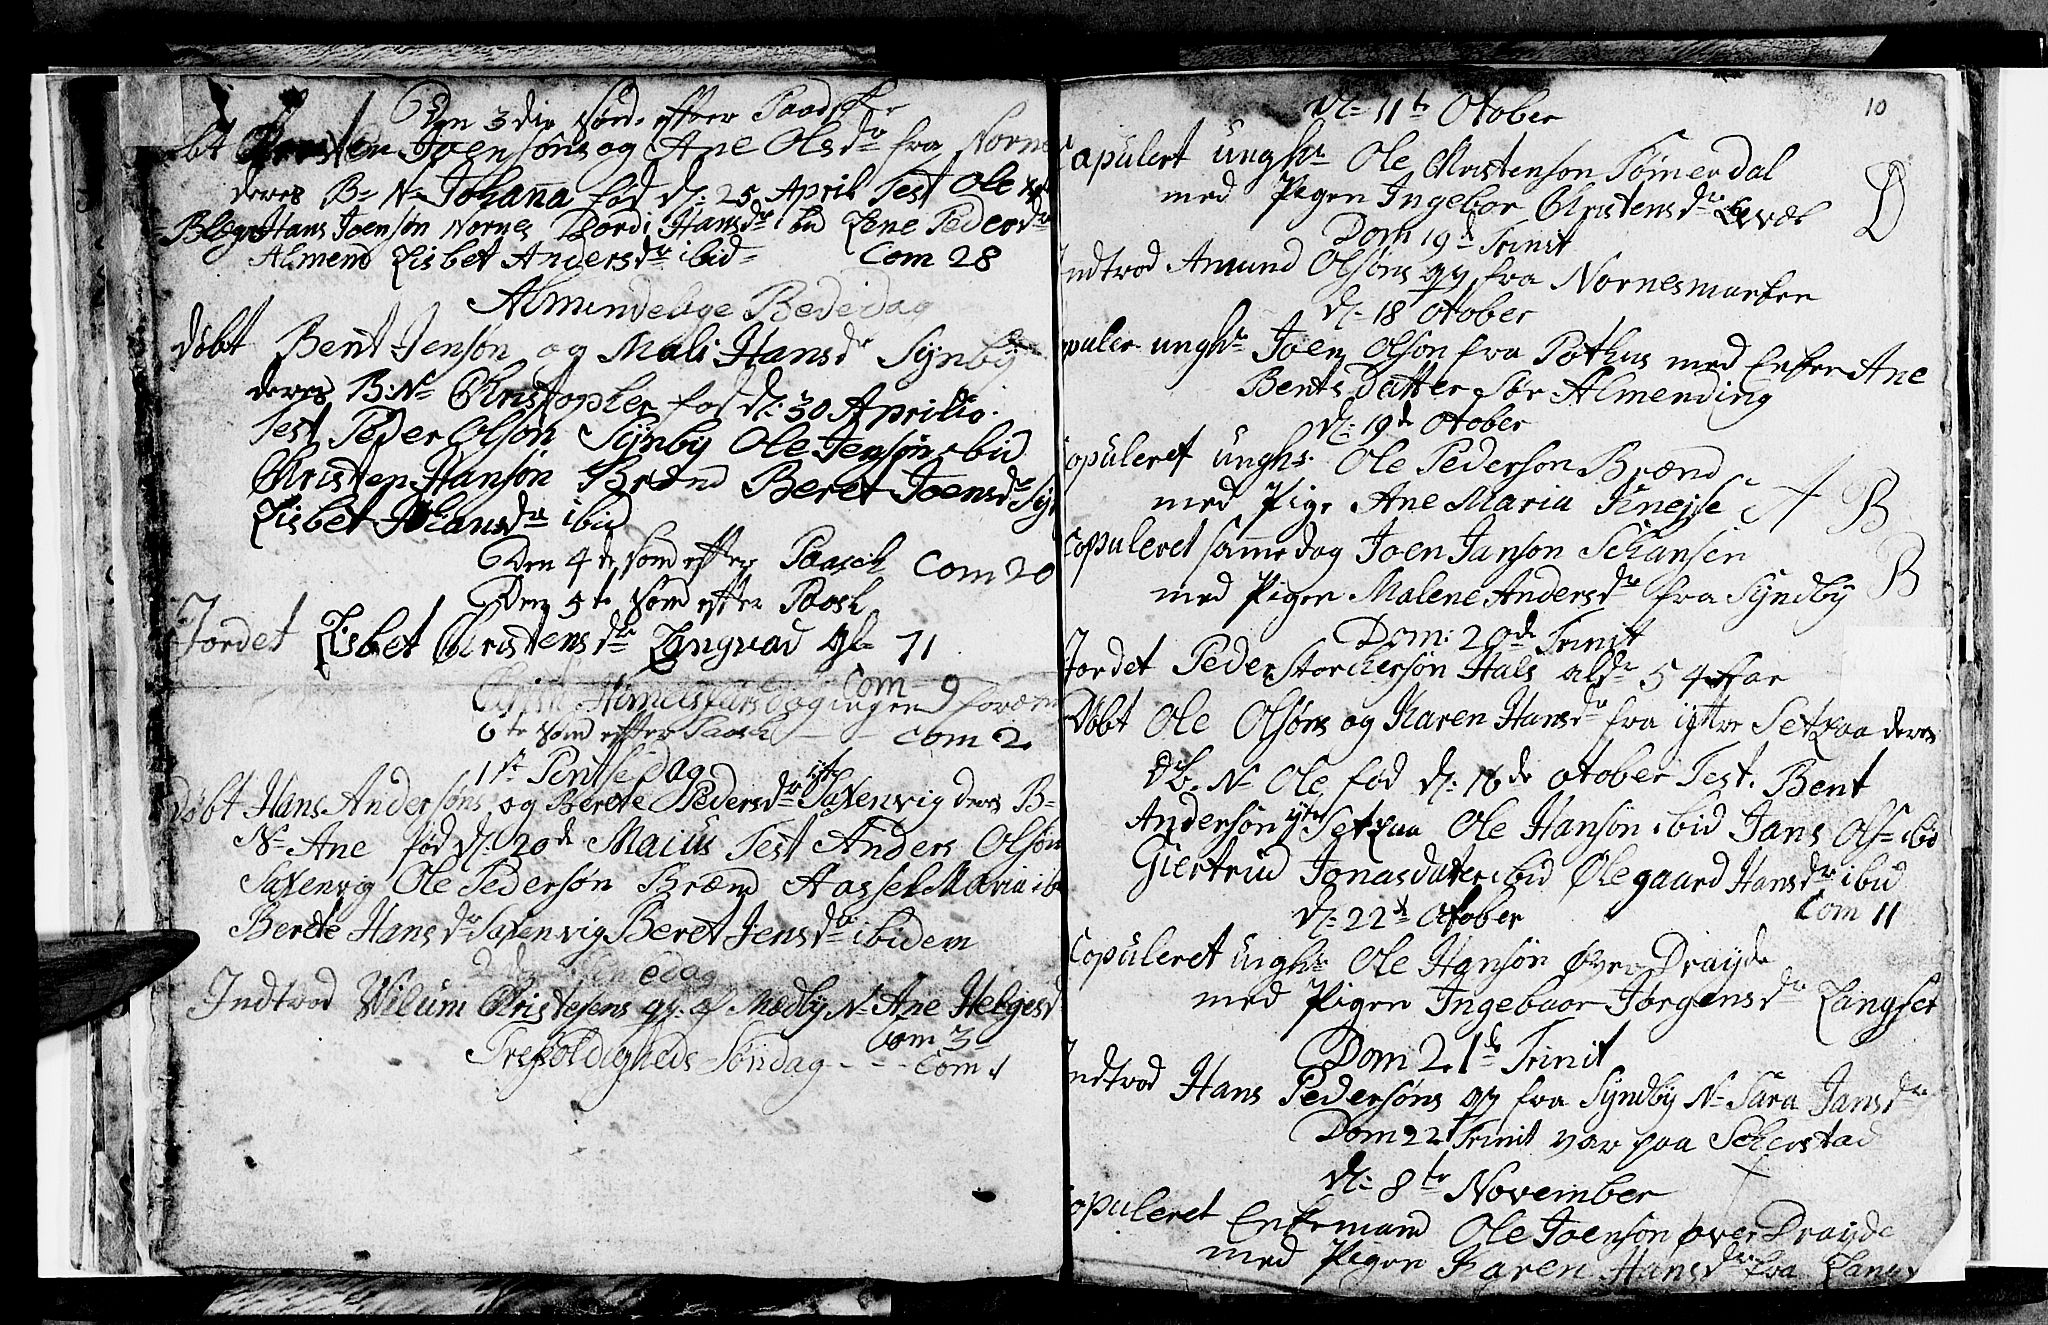 Den 3die Sønd. efter Paaske
bt Joensøns og Ane Olsdr fra Norne
deres B. N. Johanna fød d. 25 April Test Ole
Hans Joensøn Nornes Dordi Hansdr ibid Lene Pedersdr
Almend Lisbet Andersdr ibid Com 28
Almindelige Bededag
døbt Bent Jensøn og Mali Hansdr Synby
deres B: N. Christopher fød d: 30 Aprilis.
Test Peder Olsøn Synby Ole Jensøn ibid
Christen Hansøn Brænd Beret Joensdr Sy
Lisbet Johansdr ibid
Den 4de Sønd efter Paasch Com 20
Den 5te Sønd efter Paask
Jordet Lisbet Christensdr Langvad gl. 71
Com 9
Christi Himelfarsdag ingen
6te Sønd efter Paask - - Com 2
1st Pentsedag
døbt Hans Andersøns og Berete Pedersdr ytre Saxenvig deres B-
N. Ane fød d. 20de Maius Test Anders Olsøn
Saxenvig Ole Pedersøn Brænd Aassel Maria ib
Berete Hansdr Saxenvig Beret Jensdr ibidem
2den
Indtrod Wilum Christensens qv. af Mædby N. Ane Helgesd
Com 3
Trefoldigheds Søndag - - - Com 1
10
d. 11te Otober
Copulert ungk. Ole Christensøn Tømerdal
med Pigen Ingebor Christensdr Evæl
D
Dom 19de Trinit
Indtrod Amund Olsøns qv fra Nornesmarken
d. 18 Otober
opuler ungk. Joen Olsøn fra Pothus med Enken Ane
Bents Datter Sør Almending
d. 19de Otober
opuleret ungk. Ole Pedersøn Brænd
med Pige Ane Maria Knejse A B
copuleret samme dag Joen Jansøn Schansen
med Pigen Malene Andersdr fra Syndby B
Dom: 20de Trinit
Jordet Peder Storchersøn Hals aldr 54 Aar
Døbt Ole Olsøns og Karen Hansdr fra ijttre Setraa deres
db. N. Ole fød d. 16de otober Test. Bent
Andersøn ytre Setraa Ole Hansøn ibid Jans Ols. ibid
Giertrud Jonasdater ibid Ølegaard Hansdr ibid
d. 22de Otober Com 11
Copuleret ungk. Ole Hansøn øvre Drayde
med Pigen Ingebaar Jørgensdr Langset
Dom 21de Trinit
Indtrod Hans Pedersøns qv fra Syndby N. Sara Jansdr
Dom 22 Trinit var paa Scherstad
d. 8te November
opuleret Enkemand Ole Joensøn øver Drayde
med Pigen Karen Hansdr fra Lang